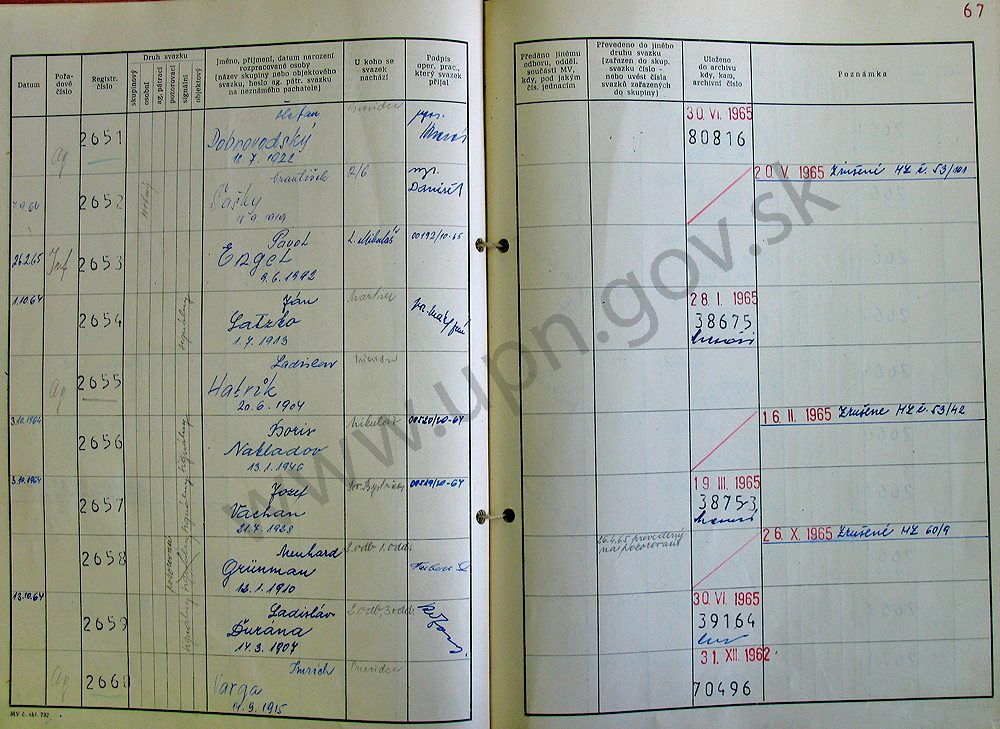 67
Datum
Pořadové číslo
Registr. číslo
Druh svazku
skupinový
osobní
ag. pátrací
pozorovací
signální
objektový
Jméno, příjmení, datum narození
rozpracované osoby
(název skupiny nebo objektového
svazku, heslo ag. pátr. svazku
na neznámého pachatele)
U koho se
svazek
nachází
Podpis
oper. prac.,
který svazek
přijal
Předáno jinému
odboru, odděl.
součásti MV,
kdy, pod jakým
čís. jednacím
Převedeno do jiného
druhu svazku
(zařazen do skup.
svazku číslo -
nebo uvést čísla
svazků zařazených
do skupiny)
Uloženo
do archivu
kdy, kam,
archivní číslo
Poznámka
Ag 2651 Štefan
Dobrovodský
30. VI. 1965
80816
2652 František
2/6
Daniš
20. V. 1965 Zrušené MZ č. 53/101
26.2.65 Inf 2653 Pavol
Engel
9.6.1942
L. Mikuláš 00192/10-65
1.10.64 2654 Ján
Latzko
1.7.1913
Martin
28. I. 1965
38675
Ag 2655 Ladislav
Hatrík
20.6.1904
3.10.1964 2656 Boris
Nakladov
13.1.1946
Mikuláš 00520/20-64
16. II. 1965 Zrušené MZ č. 53/42
3.10.1964 2657 Jozef
Vachan
21.7.1928
00519/20-64
19. III. 1965
38753
2658 Meinhard
Grünman
12.1.1910
2.odb. 1.odd.
26.4.65 prevedený
na pozorovaní
26. X. 1965 Zrušené MZ 60/9
13.10.64 2659 Ladisláv
Ďurána
14.3.1904
2.odb, 3.odd.
30. VI. 1965
39164
Ag 2660 Imrich
Varga
14.9.1915
31. XII. 1962
70496
MV č. skl. 792
www.upn.gov.sk